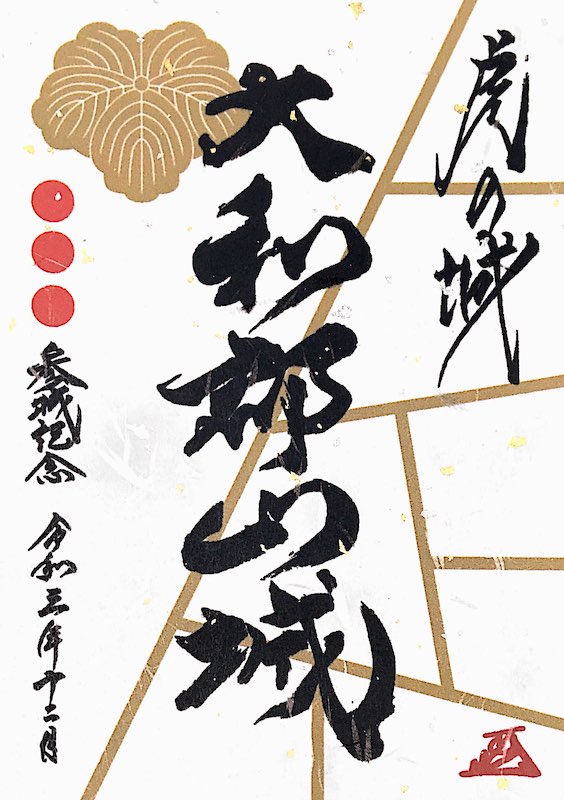 虎の城
大和郡山城
参城記念 令和三年十二月